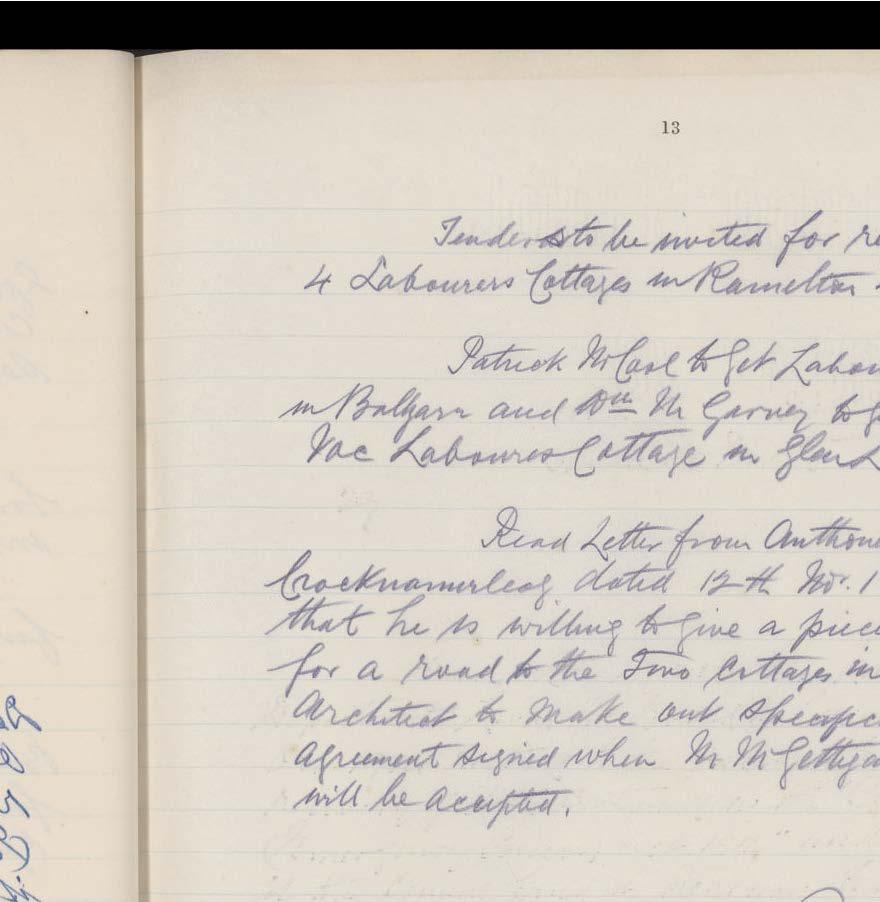 13
Tenders to be invited for re
4 Labourers Cottages in Ramelton
Patrick McCool to Get Labou
in and Wm McGarvey to g
Vac Laboures Cottage in Glen
Read Letter from Anthon
dated 12th Nov. 1
that he is willing to give a piec
for a road to the Two Cottages in
Architect to make out specific
agreement signed when Mr McGettiga
will be accepted.